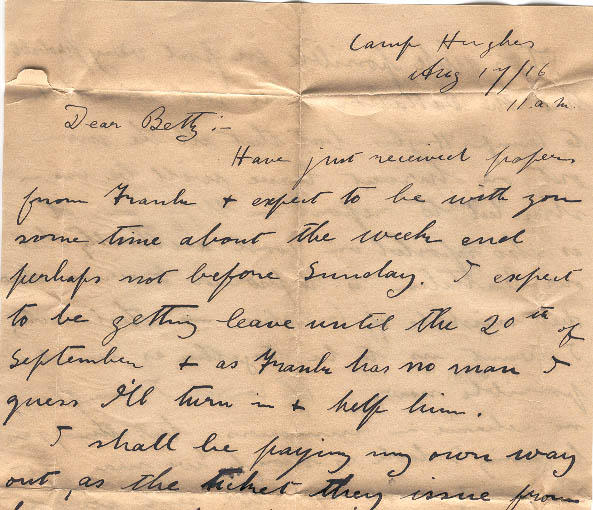 Camp Hughes
Aug 17/16
11 a.m.
Dear Betty :-
Have just received papers
from Frank + expect to be with you
some time about the week end
perhaps not before Sunday. I expect
to be getting leave until the 20th of
September + as Frank has no man I
guess I'll turn in + help him.
I shall be paying my own way
out, as the ticket they issue from